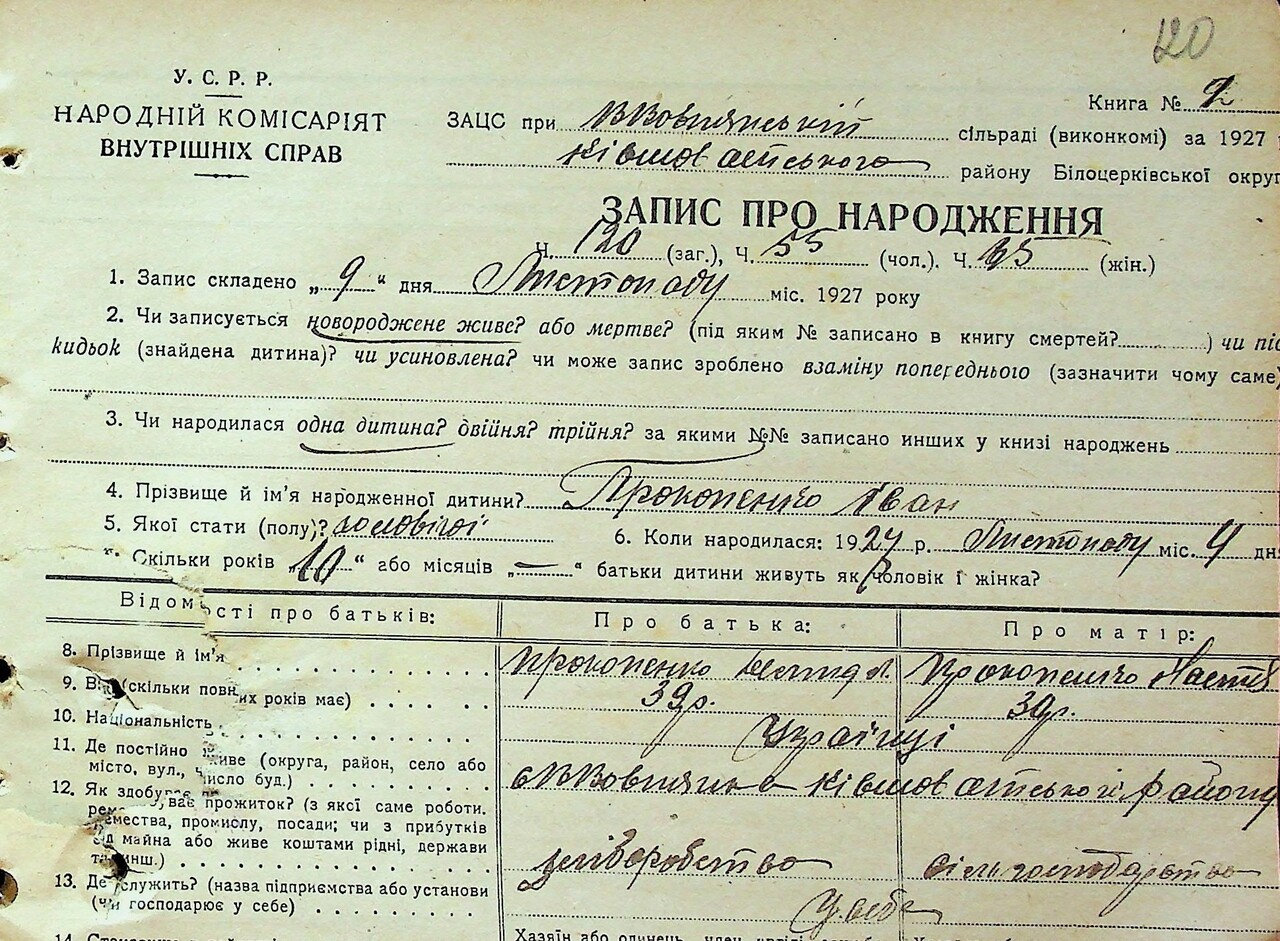 120
У. С. Р. Р.
НАРОДНІЙ КОМІСАРІЯТ
ВНУТРІШНІХ СПРАВ
Книга № 2
ЗАЦС при В Вовнянській сільраді (виконкомі) за 1927
району Білоцерківської округ
ЗАПИС ПРО НАРОДЖЕННЯ
Ч. 120 (заг.), Ч. 55 (чол.). Ч. 65 (жін.)
1. Запис складено „ 9 “ дня Листопаду міс. 1927 року
2. Чи записується новороджене живе? або мертве? (під яким № записано в книгу смертей? ) чи під
кидьок (знайдена дитина)? чи усиновлена? чи може запис зроблено взаміну попереднього (зазначити чому саме)
3. Чи народилася одна дитина? двійня? трійня? за якими №№ записано инших у книзі народжень
4. Прізвище й ім'я народженної дитини? Прокопенко Іван
5. Якої стати (полу)? чоловічої 6. Коли народилася: 1927 р. Листопаду міс. 4 дня
Скільки років „ 10 “ або місяців „ — “ батьки дитини живуть як чоловік і жінка?
Відомості про батьків: Про батька: Про матір:
8. Прізвище й ім'я Прокопенко Прокопенко Настя
9. Вік (скільки повних років має) 39р. 30р.
10. Національність Українці
11. Де постійно живе (округа, район, село або
місто, вул., число буд.) району
12. Як здобуває прожиток? (з якої саме роботи.
ремества, промислу, посади; чи з прибутків
від майна або живе коштами рідні, держави
та инш.) хліборобство сільгосподарство
13. Де служить? (назва підприємства або установи
(чи господарює у себе) У себе
Хазяїн або одинець